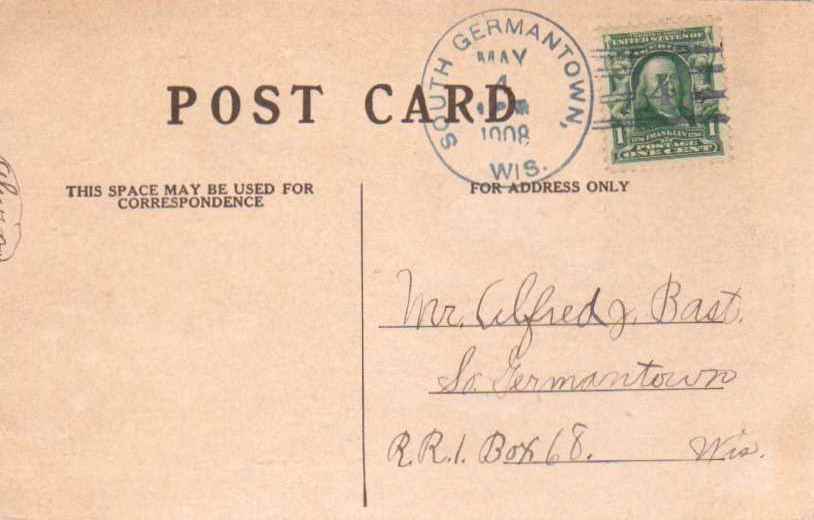 POST CARD
SOUTH GERMANTOWN,
MAY
4
1908
WIS.
UNITED STATES OF
AMERICA
4
1 FRANKLIN 1
POSTAGE
ONE CENT
THIS SPACE MAY BE USED FOR
CORRESPONDENCE
FOR ADDRESS ONLY
Mr. Alfred J. Bast.
So. Germantown
R.R.1. Box 68. Wis.